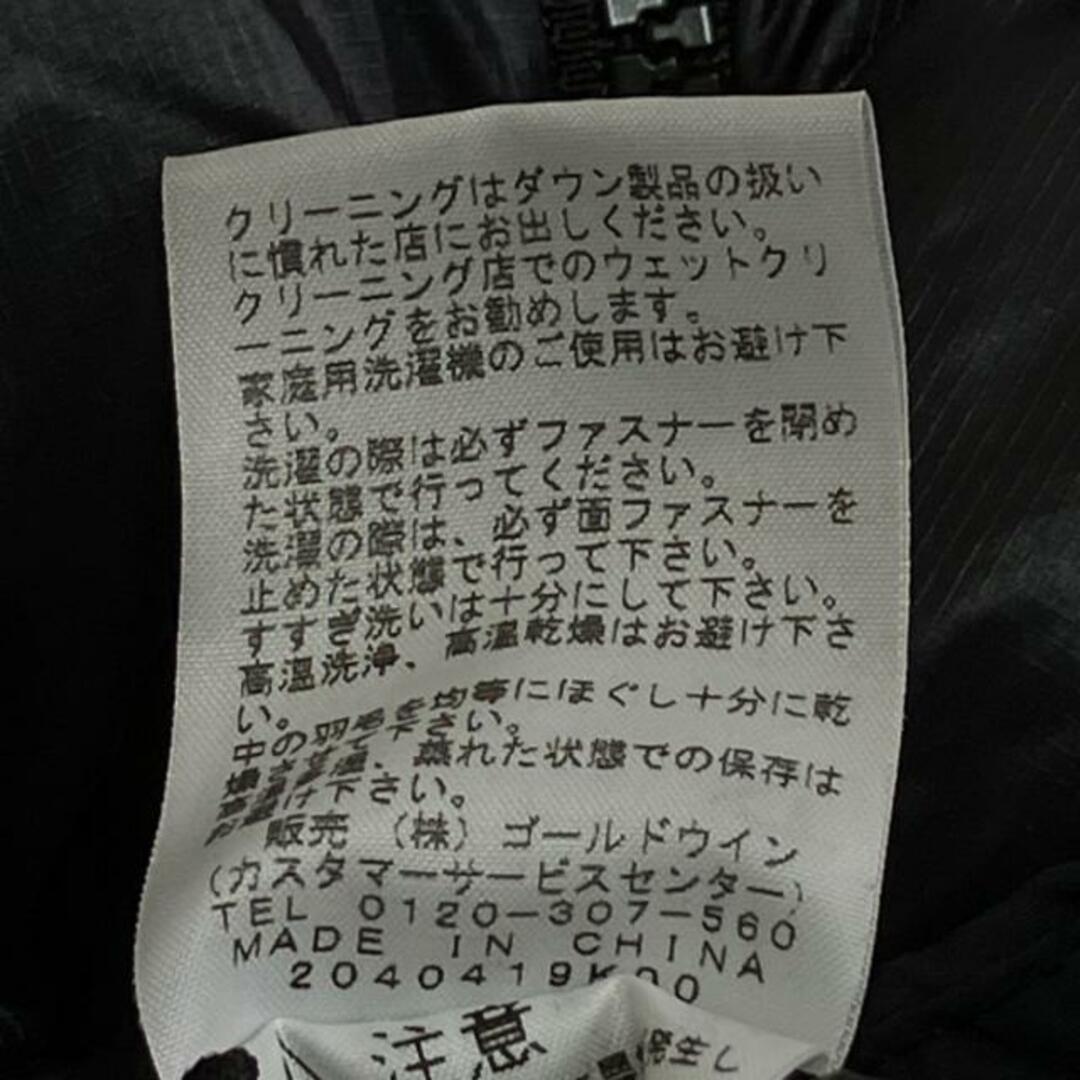 クリーニングはダウン製品の扱い
に慣れた店にお出しください。
クリーニング店でのウェットクリ
ーニングをお勧めします。
家庭用洗濯機のご使用はお避け下
さい。
洗濯の際は必ずファスナーを閉め
た状態で行ってください。
洗濯の際は、必ず面ファスナーを
止めた状態で行って下さい。
すすぎ洗いは十分にして下さい。
高温洗浄、高温乾燥はお避け下さ
い。
中の羽毛を均等にほぐし十分に乾
燥させて下さい。
高温、蒸れた状態での保存は
お避け下さい。
販売 (株)ゴールドウイン
(カスタマーサービスセンター)
TEL 0120-307-560
MADE IN CHINA
2040419K00
注意
発生し